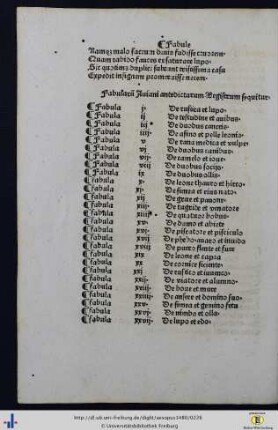 Fabule
Expedit insignem promeruisse necem.
Fabularum Auiani antedictarum Registrum sequitur
Fabula j De rustica et lupo
Fabula ij De testudine et auibus
Fabula iij De duobus cancris
Fabula iiij De asino et pelle leonis
Fabula v De rana medica et vulpe
Fabula vj De duobus canibus
Fabula vij De camelo et ioue
Fabula viij De duobus socijs
Fabula ix De duobus ollis
Fabula x De leone thauro et hirco
Fabula xj De simea et eius nato
Fabula xij De grue et pauone
Fabula xiij De tigride et venatore
Fabula xiiij De quatuor bobus
Fabula xv
Fabula xvj De piscatore et pisciculo
Fabula xvij De phebo auaro et inuido
Fabula xviij De puero flente et fure
Fabula xix De leone et capra
Fabula xx De cornice sciente
Fabula xxj De rustico et iuuenco
Fabula xxij De viatore et alumno
Fabula xxiij De boue et mure
Fabula xxiiij De ansere et domino suo
Fabula xxv De simea et geminis
Fabula xxvj De nimbo et olla
Fabula xxvij De lupo et edo
http://dl.ub.uni-freiburg.de/diglit/aesopus1480/0226
© Universitätsbibliothek Freiburg